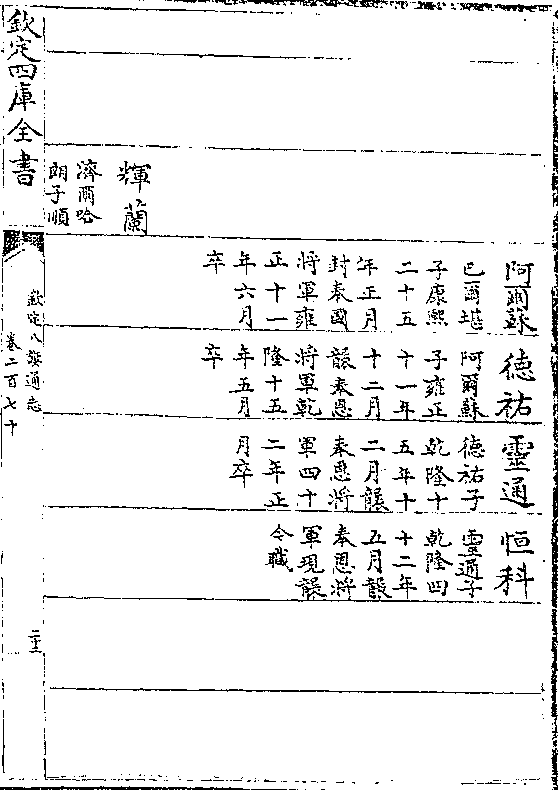 阿爾蘇
巴爾堪
子康熙
二十五
年正月
封奉國
將軍雍
正十一
年六月
卒
德祐
阿爾蘇
子雍正
十一年
十二月
襲奉恩
將軍乾
隆十五
年五月
卒
靈通
德祐子
乾隆十
五年十
二月襲
奉恩將
軍四十
二年正
月卒
恒科
靈通子
乾隆四
十二年
五月襲
奉恩將
軍現襲
今職
輝蘭
濟爾哈
朗子順
欽定四庫全書
欽定八旗通志
卷二百七十
二十三